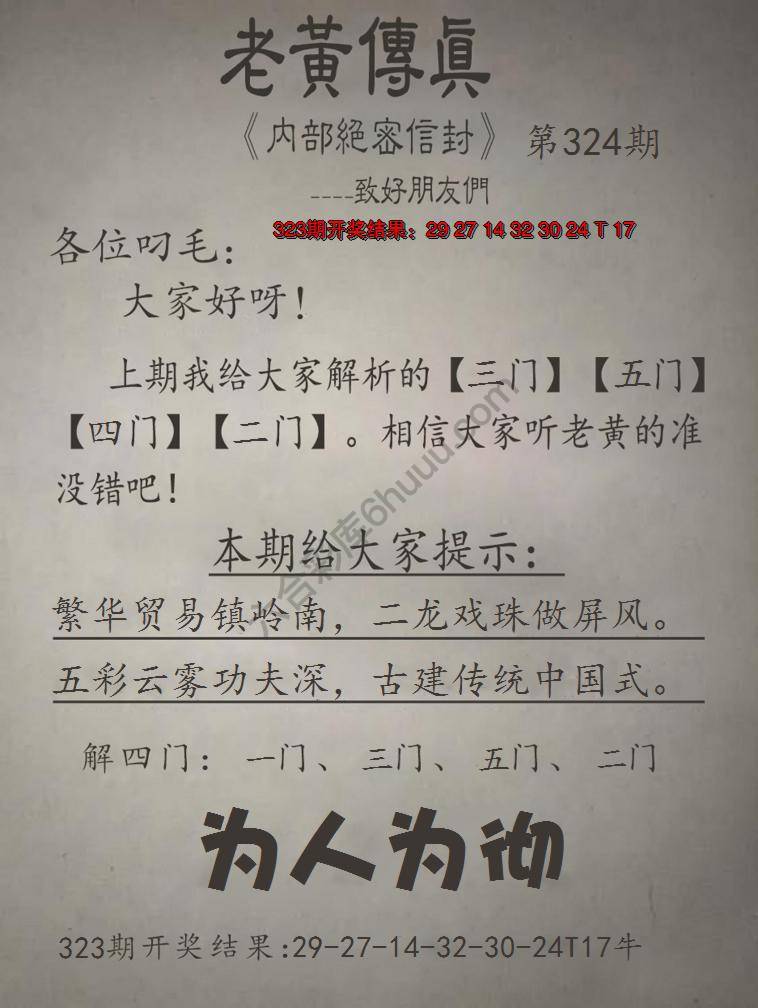 老黃傳眞
《内部絕密信封》 第324期
----致好朋友們
323期开奖结果：29 27 14 32 30 24 T 17
各位叼毛：
大家好呀！
上期我给大家解析的【三门】【五门】
【四门】【二门】。相信大家听老黄的准
没错吧！
本期给大家提示：
繁华贸易镇岭南，二龙戏珠做屏风。
五彩云雾功夫深，古建传统中国式。
解四门： 一门、 三门、 五门、 二门
为人为彻
323期开奖结果:29-27-14-32-30-24T17牛
六合彩库6huuu.com